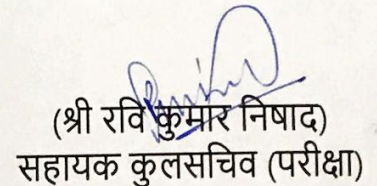 (श्री रवि कुमार निषाद)
सहायक कुलसचिव (परीक्षा)